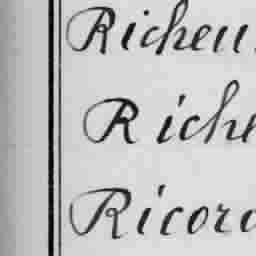 Richeu
Riche
Ricord